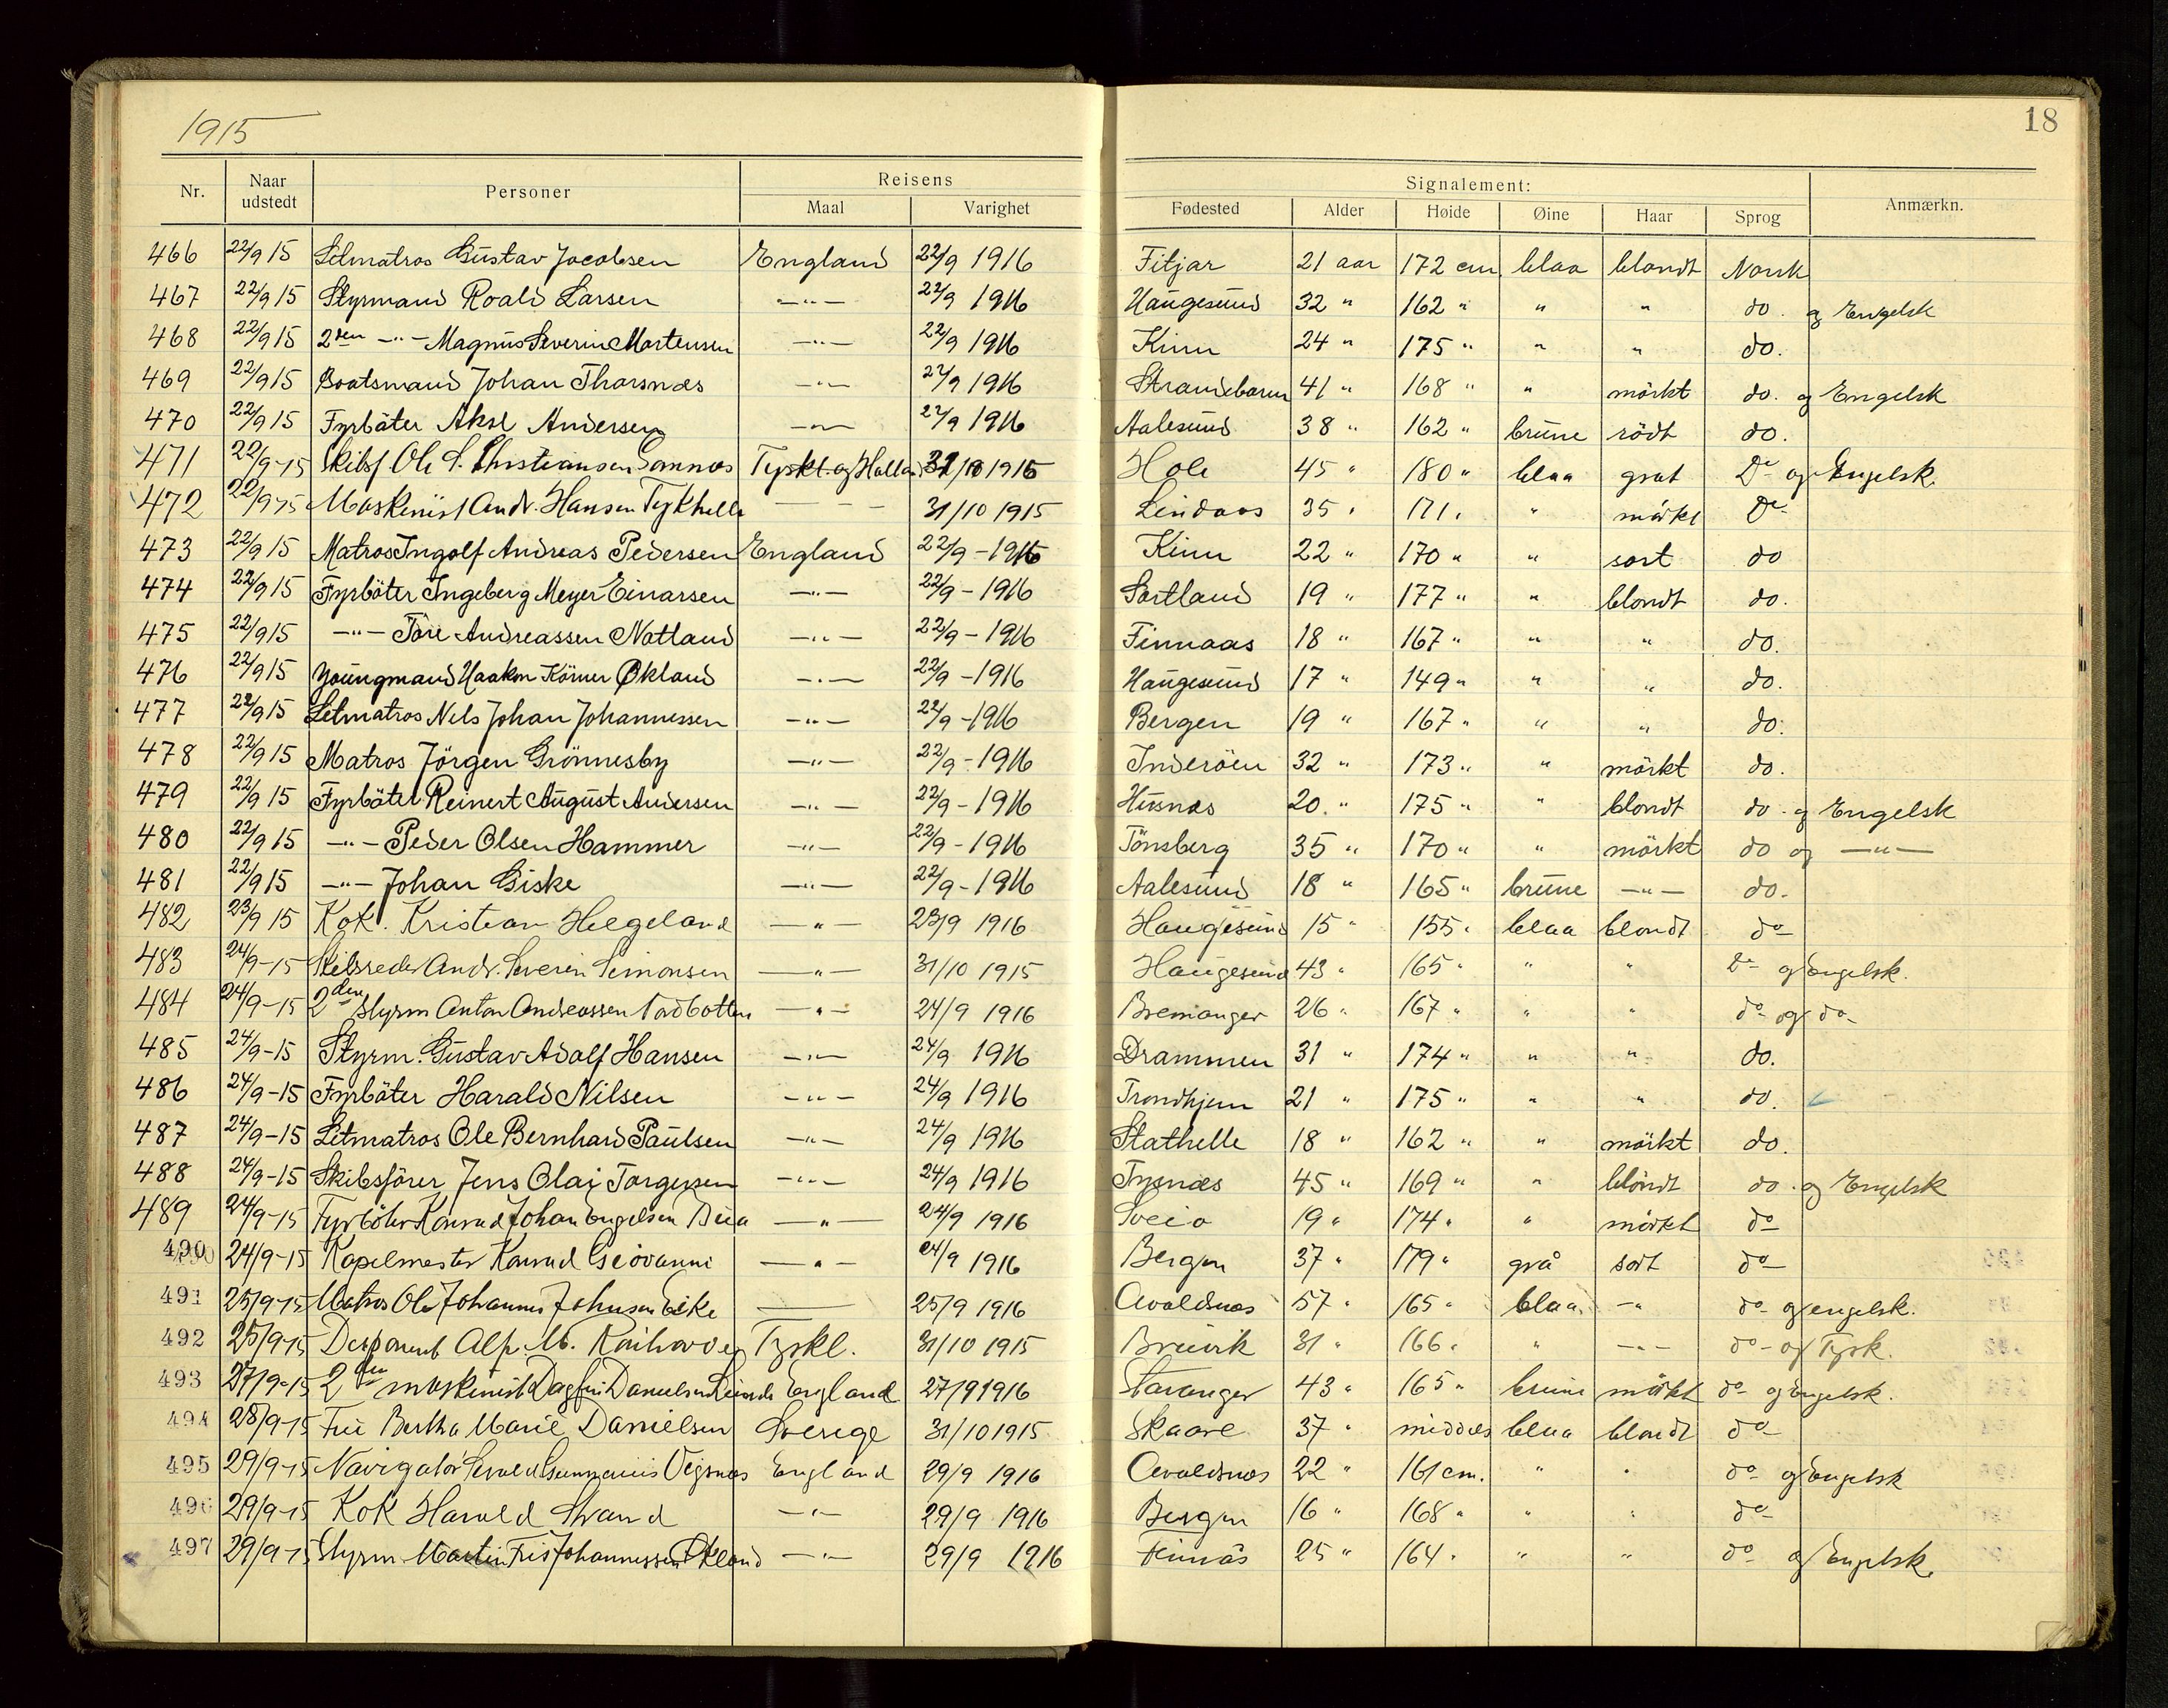 1915
18
Nr. Naar udstedt Personer Reisens Maal Varighet Signalement: Fødested Alder Høide Øine Haar Sprog Anmærkn.
466 22/9 15 Letmatros Gustav Jacobsen England 22/9 1916 Fitjar 21 aar 172 cm blaa blondt Norsk
467 22/9 15 Styrmand Roald Larsen —"— 22/9 1916 Haugesund 32 " 162 " " " do. og Engelsk
468 22/9 15 2den —"— Magnus Severin Mortensen —"— 22/9 1916 Kinn 24 " 175 " " " do.
469 22/9 15 Boatsmand Johan Tharsnæs —"— 22/9 1916 Strandebarm 41 " 168 " " mörkt do. og Engelsk
470 22/9 15 Fyrböter Aksel Andersen —"— 22/9 1916 Aalesund 38 " 162 " brune rödt do.
471 22/9-15 Skibsf Ole S. Christiansen Tyskl. og Holla 31/10 1915 Hole 45 " 180 " blaa graat Do og Engelsk
472 22/9-15 Maskinist Andr. Hansen Tykhelle — — — 31/10 1915 Lindaas 35 " 171 " " mörkt Do
473 22/9 15 Matros Ingolf Andreas Pedersen England 22/9-1916 Kinn 22 " 170 " " sort do
474 22/9 15 Fyrböter Ingeberg Meyer Einarsen —"— 22/9-1916 Sortland 19 " 177 " " blondt do.
475 22/9 15 —"— Tore Andreassen Notland —"— 22/9-1916 Finnaas 18 " 167 " " " do.
476 22/9 15 Youngmand Haakon Körner Økland —"— 22/9-1916 Haugesund 17 " 149 " " " do.
477 22/9 15 Letmatros Nels Johan Johannessen —"— 22/9-1916 Bergen 19 " 167 " " " do.
478 22/9 15 Matros Jörgen Grönnesby —"— 22/9-1916 Inderöen 32 " 173 " " mörkt do.
479 22/9 15 Fyrböter Reinert August Andersen —"— 22/9-1916 Husnes 20 " 175 " " blondt do. og Engelsk
480 22/9 15 —"— Peder Olsen Hammer —"— 22/9-1916 Tönsberg 35 " 170 " " mörkt do og —"—
481 22/9 15 —"— Johan Giske —"— 22/9-1916 Aalesund 18 " 165 " brune —"— do.
482 23/9 15 Kok. Kristian Helgeland —"— 23/9 1916 Haugesund 15 " 155 " blaa blondt do
483 24/9-15 Skibsreder Andr. Severin Simonsen —"— 31/10 1915 Haugesund 43 " 165 " " " Do og Engelsk.
484 24/9-15 2den Styrm Anton Andreassen Nordbotten —"— 24/9 1916 Bremanger 26 " 167 " " " do og do
485 24/9-15 Styrm. Gustav Adolf Hansen —"— 24/9 1916 Drammen 31 " 174 " " " do.
486 24/9-15 Fyrböter Harald Nilsen —"— 24/9 1916 Trondhjem 21 " 175 " " " do.
487 24/9-15 Letmatros Ole Bernhard Paulsen —"— 24/9 1916 Stathelle 18 " 162 " " mörkt do.
488 24/9-15 Skibsförer Jens Olai Torgersen —"— 24/9 1916 Tysnæs 45 " 169 " " blondt do. og Engelsk
489 24/9-15 Fyrböter Konrad Johan Engelsen Bua —"— 24/9 1916 Sveio 19 " 174 " " mörkt do
490 24/9-15 Kapelmester Konrad Giovanni —"— 24/9 1916 Bergen 37 " 179 " grå sort do
491 25/9-15 Matros Ole Johannes Johnsen Eike —— 25/9 1916 Avaldsnes 57 " 165 " blaa —"— do og engelsk.
492 25/9-15 Disponent Alf. M. Tyskl. 31/10 1915 Brevik 31 " 166 " " —"— do og Tysk.
493 27/9-15 2den maskinist Dagfin Danielsen England 27/9 1916 Stavanger 43 " 165 " brune mörkt do og Engelsk.
494 28/9-15 Fru Bertha Marie Danielsen Sverige 31/10 1915 Skaare 37 " middels blaa blondt do
495 29/9-15 Navigatör Vigsnæs England 29/9 1916 Avaldsnes 22 " 161 cm. " " do og Engelsk
496 29/9-15 Kok Harald Strand —"— 29/9 1916 Bergen 16 " 168 " " " do
497 29/9-15 Styrm Martin Johannessen Økland —"— 29/9 1916 Finnås 25 " 164 " " " do og Engelsk.